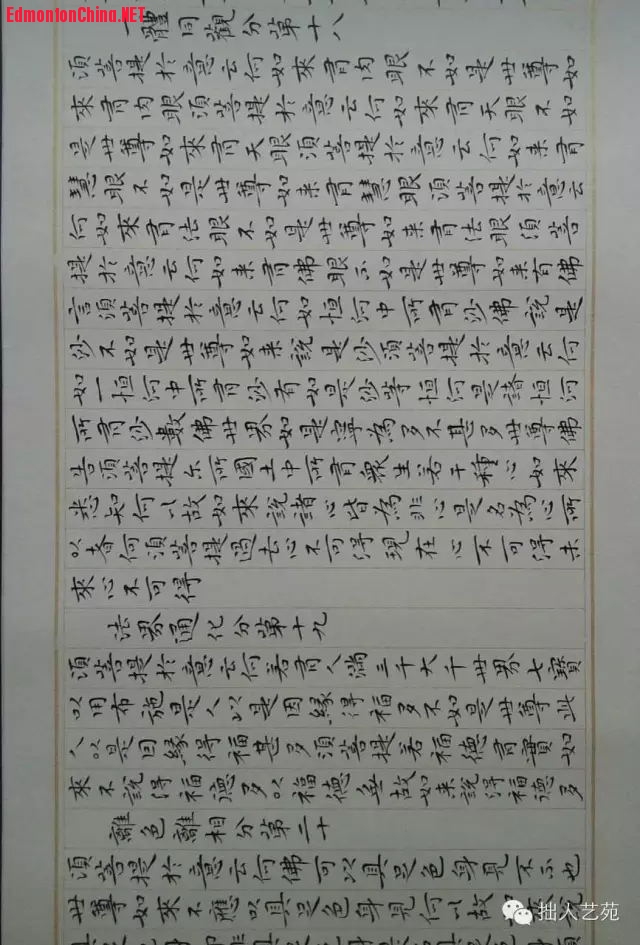 EdmontonChina.NET
一體同觀分第十八
須菩提於意云何如來有肉眼不如是世尊如
來有肉眼須菩提於意云何如來有天眼不如
是世尊如來有天眼須菩提於意云何如来有
慧眼不如是世尊如来有慧眼須菩提於意云
何如來有法眼不如是世尊如来有法眼須菩
提於意云何如来有佛眼不如是世尊如来有佛
言須菩提於意云何如恒河中所有沙佛說是
沙不如是世尊如来說是沙須菩提於意云何
如一恒河中所有沙有如是沙等恒河是諸恒河
所有沙數佛世界如是寧為多不甚多世尊佛
告須菩提尔所國土中所有衆生若干種心如來
悉知何以故如來說諸心皆為非心是名為心所
以者何須菩提過去心不可得現在心不可得未
來心不可得
法界通化分第十九
須菩提於意云何若有人滿三千大千世界七寶
以用布施是人以是因緣得福多不如是世尊此
人以是因緣得福甚多須菩提若福德有實如
來不說得福德多以福德無故如来說得福德多
離色離相分第二十
須菩提於意云何佛可以具足色身見不不也
世尊如來不應以具足色身見何以故如
拙人艺苑